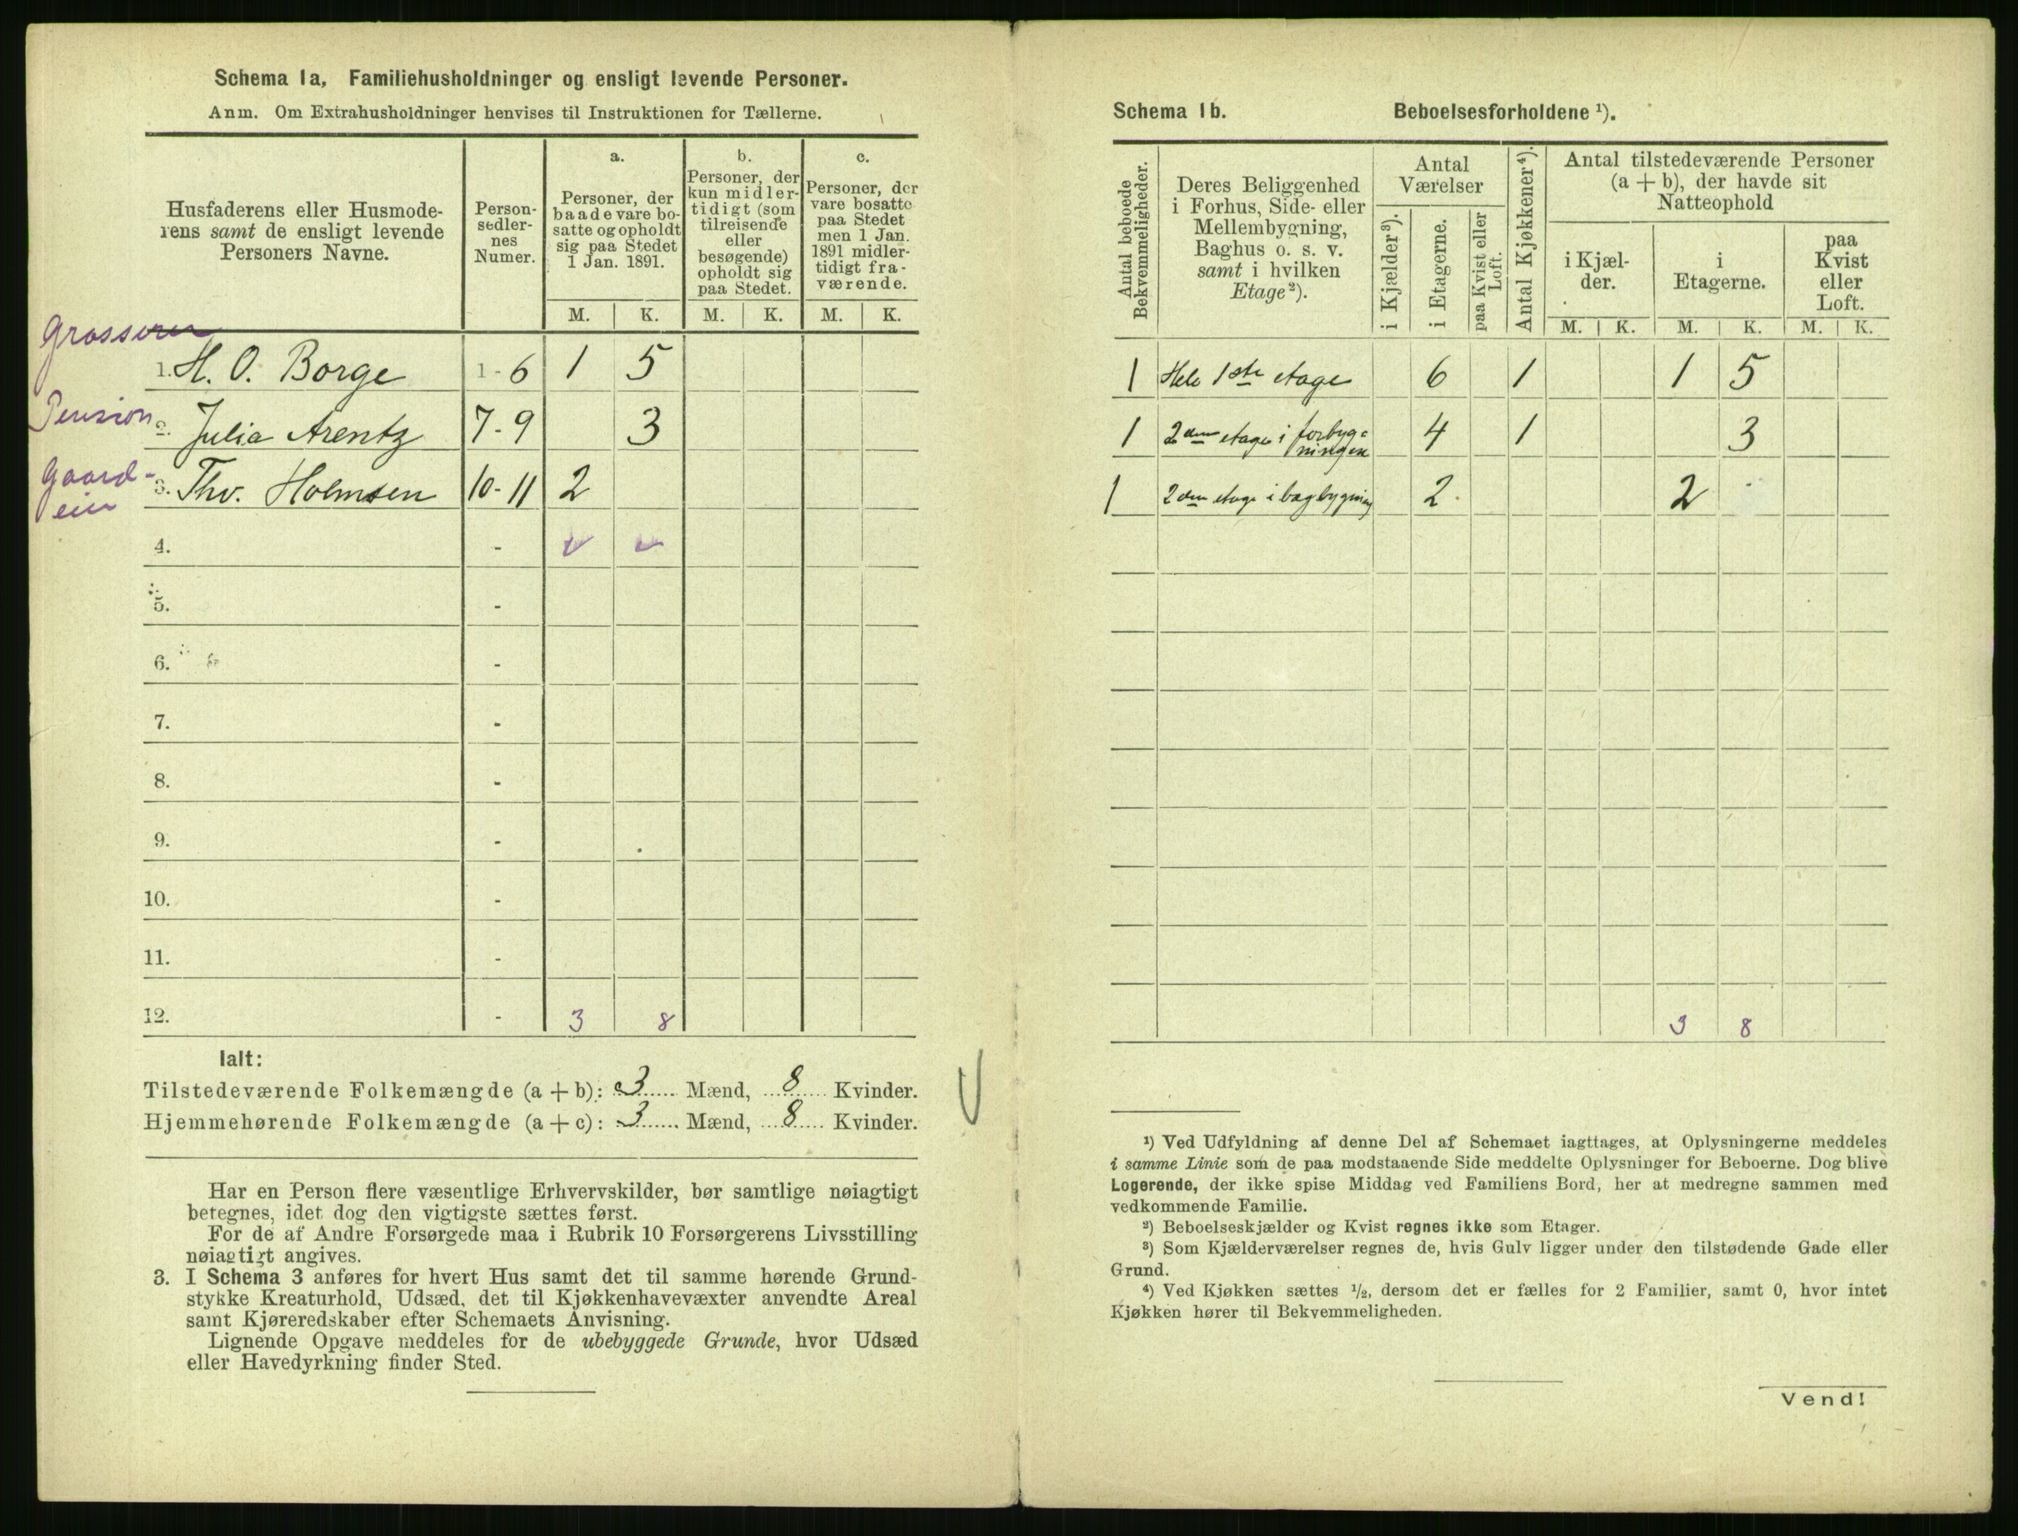 Schema 1a, Familiehusholdninger og ensligt levende Personer.
Anm. Om Extrahusholdninger henvises til Instruktionen for Tællerne.
Husfaderens eller Husmode-
rens samt de ensligt levende
Personers Navne.
Person-
sedler-
nes
Numer.
a.
Personer, der
baade vare bo-
satte og opholdt
sig paa Stedet
1 Jan. 1891.
b.
Personer, der
kun midler-
tidigt (som
tilreisende
eller
besøgende)
opholdt sig
paa Stedet.
c.
Personer, der
vare bosatte
paa Stedet
men 1 Jan.
1891 midler-
tidigt fra-
værende.
M. K. M. K. M. K.
Grosserer
1. H. O. Borge 1-6 1 5
Pension
2. Julia Arentz 7-9 3
Gaard-
eier
3. Thv. Holmsen 10-11 2
4. -
5. -
6. -
7. -
8. -
9. -
10. -
11. -
12. - 3 8
Ialt:
Tilstedeværende Folkemængde (a + b): 3 Mænd, 8 Kvinder.
Hjemmehørende Folkemængde (a + c): 3 Mænd, 8 Kvinder.
Har en Person flere væsentlige Erhvervskilder, bør samtlige nøiagtigt
betegnes, idet dog den vigtigste sættes først.
For de af Andre Forsørgede maa i Rubrik 10 Forsørgerens Livsstilling
nøiagtigt angives.
3. I Schema 3 anføres for hvert Hus samt det til samme hørende Grund-
stykke Kreaturhold, Udsæd, det til Kjøkkenhavevæxter anvendte Areal
samt Kjøreredskaber efter Schemaets Anvisning.
Lignende Opgave meddeles for de ubebyggede Grunde, hvor Udsæd
eller Havedyrkning finder Sted.
Schema 1b. Beboelsesforholdene ¹).
Antal beboede
Bekvemmeligheder.
Deres Beliggenhed
i Forhus, Side- eller
Mellembygning,
Baghus o. s. v.
samt i hvilken
Etage ²).
Antal
Værelser
i Kjælder ³).
i Etagerne.
paa Kvist eller
Loft.
Antal Kjøkkener ⁴).
Antal tilstedeværende Personer
(a + b), der havde sit
Natteophold
i Kjæl-
der.
i
Etagerne.
paa
Kvist
eller
Loft.
M. K. M. K. M. K.
1 Hele 1ste etage 6 1 1 5
1 2den etage i forbyg-
ningen 4 1 3
1 2den etage i bagbygning 2 2
3 8
¹) Ved Udfyldning af denne Del af Schemaet iagttages, at Oplysningerne meddeles
i samme Linie som de paa modstaaende Side meddelte Oplysninger for Beboerne. Dog blive
Logerende, der ikke spise Middag ved Familiens Bord, her at medregne sammen med
vedkommende Familie.
²) Beboelseskjælder og Kvist regnes ikke som Etager.
³) Som Kjælderværelser regnes de, hvis Gulv ligger under den tilstødende Gade eller
Grund.
⁴) Ved Kjøkken sættes ½, dersom det er fælles for 2 Familier, samt 0, hvor intet
Kjøkken hører til Bekvemmeligheden.
Vend!